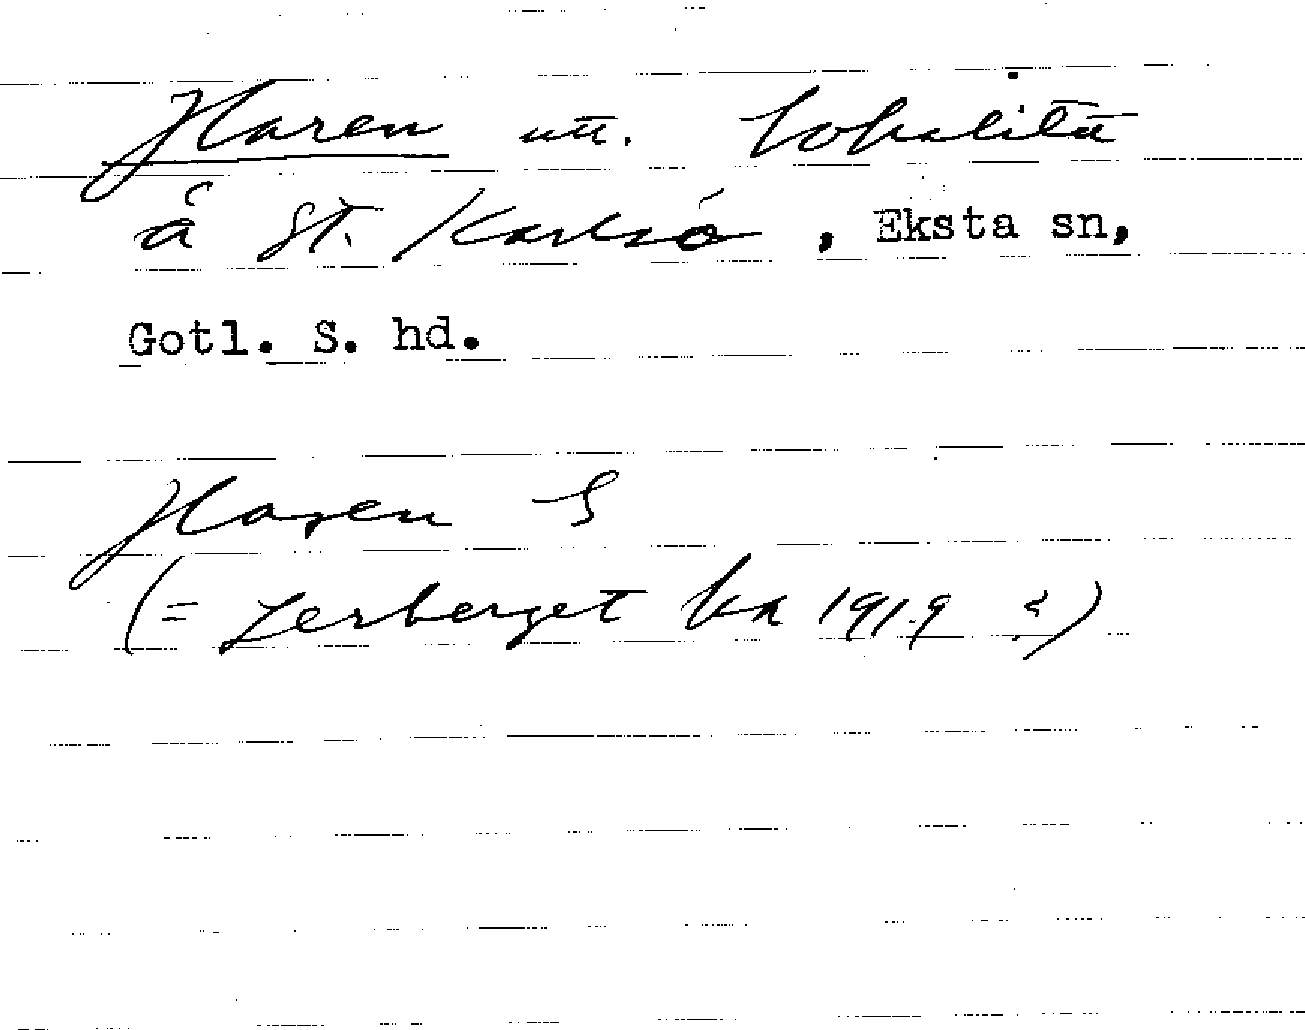 Haren utt. lokalitet
å St. Karlsö, Eksta sn,
Gotl. S. hd.
Haren S
(= Lerberget ka 1919 ?)